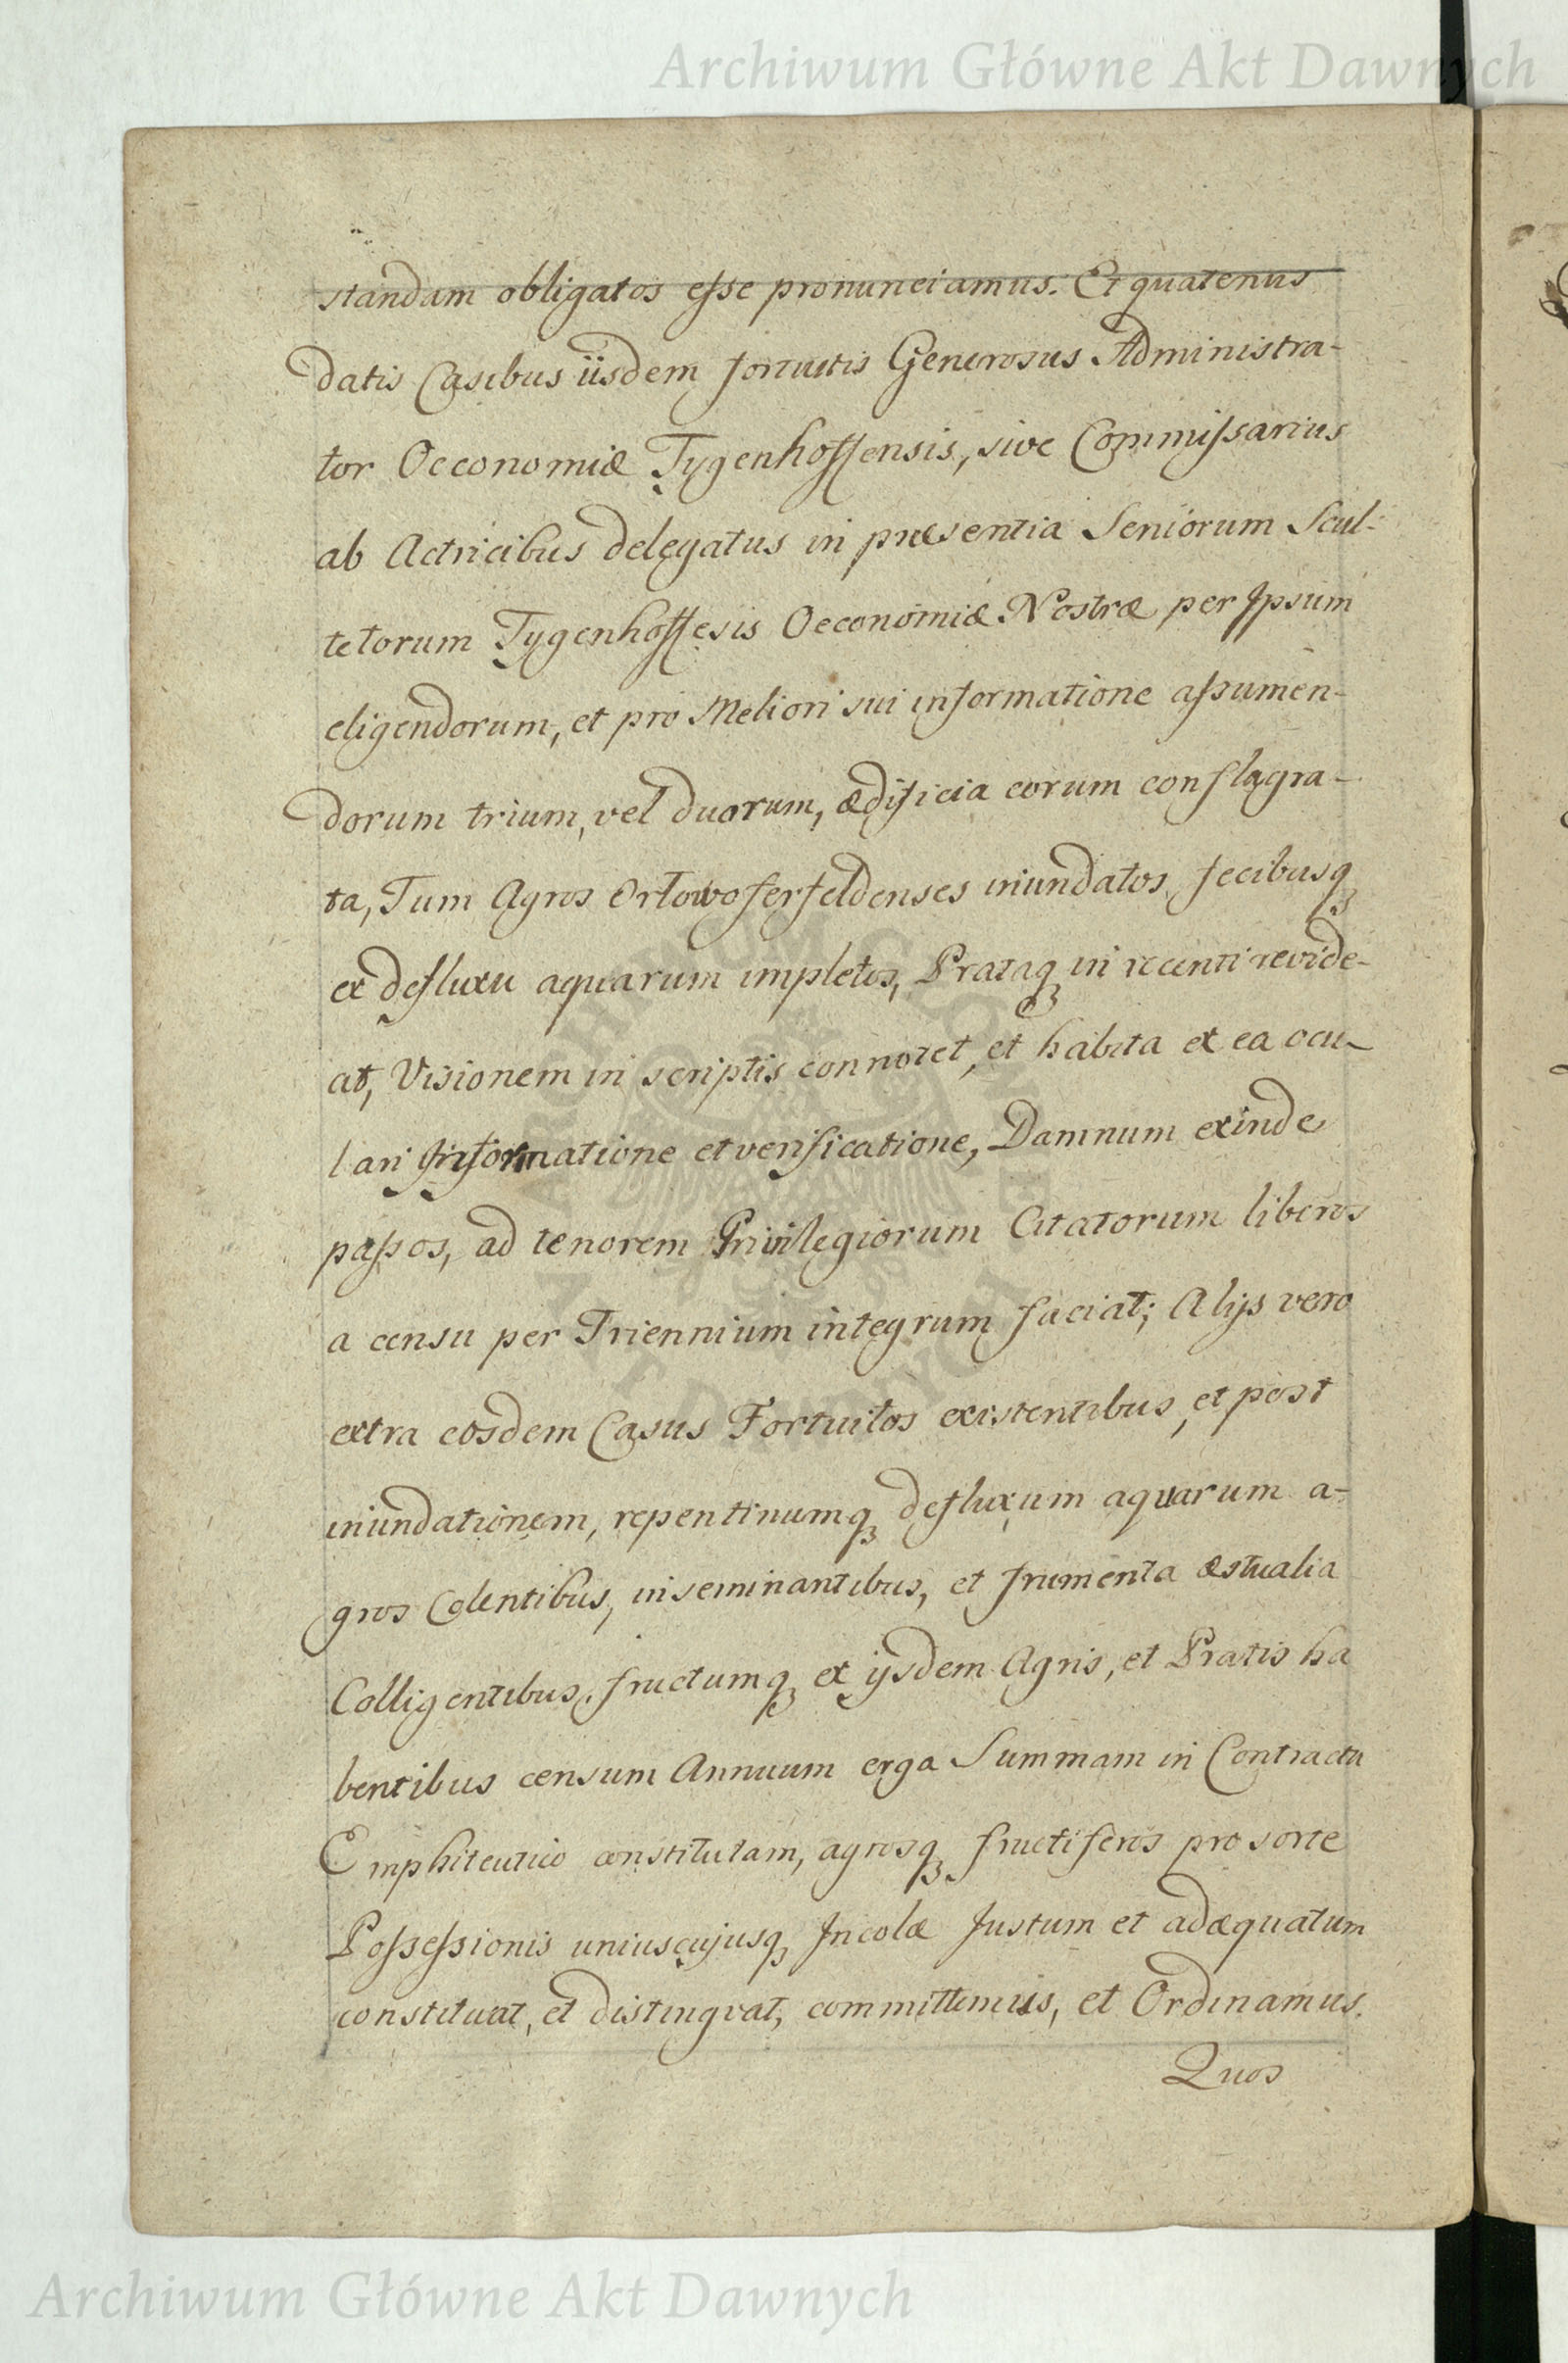 Archiwum Główne Akt Dawnych
standam obligatos esse pronunciamus. Et quatenus
datis Casibus iisdem fortuitis Generosus Administra-
tor Oeconomiæ Tygenhoffensis, sive Commissarius
ab Actricibus delegatus in præsentia Seniorum Scul-
tetorum Tygenhoffesis Oeconomiæ Nostræ per Ipsum
eligendorum, et pro Meliori sui informatione assumen-
dorum trium, vel duorum, ædificia eorum conflagra-
ta, Tum Agros Orlowoferfeldenses inundatos, fecibusq
ex defluxu aquarum impletos, Prataq in recenti revide-
at, Visionem in scriptis connotet, et habita ex ea ocu-
lari Informatione et verificatione, Damnum exinde
passos, ad tenorem Privilegiorum Citatorum liberos
a censu per Triennium integrum faciat; Alijs vero
extra eosdem Casus Fortuitos existentibus, et post
inundationem, repentinumq defluxum aquarum a-
gros Colentibus, inseminantibus, et frumenta æstualia
Colligentibus, fructumq ex ijsdem Agris, et Pratis ha
bentibus censum Annuum erga Summam in Contractu
Emphiteutico constitutam, agrosq fructiferos pro sorte
Possessionis uniuscujusq Incolæ Justum et adæquatum
constituat, et distingvat, committimus, et Ordinamus.
Quos
Archiwum Główne Akt Dawnych